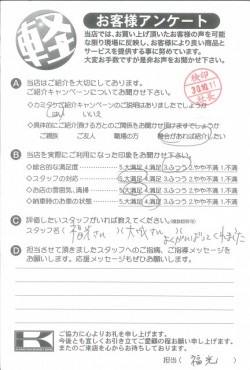 軽
お客様アンケート
当店では、お買い上げ頂いたお客様の声を可能な
限り現場に反映し、お客様により良い商品と
サービスを提供する事に努めています。
大変お手数ですが是非お声をお聞かせ下さい。
検印
30.10.11
A 当店はご紹介を大切にしております。
ご紹介キャンペーンについてお聞かせ下さい。
◆カミタケご紹介キャンペーンのご説明はありましたでしょうか
はい いいえ
◆具体的にご紹介頂ける方とのご関係をお聞かせ頂けますでしょうか
ご親族 ご友人 職場の方 機会があれば紹介したい
B 当店を実際にご利用になった印象をお聞かせ下さい。
◆総合的な満足度 5.大満足 4.満足 3.ふつう 2.やや不満 1.不満
◆スタッフの対応 5.大満足 4.満足 3.ふつう 2.やや不満 1.不満
◆お店の雰囲気、清掃 5.大満足 4.満足 3.ふつう 2.やや不満 1.不満
◆納車時のお車の状態 5.大満足 4.満足 3.ふつう 2.やや不満 1.不満
C 評価したいスタッフがいれば教えてください。(複数回答可)
スタッフ名( 福光さん )( さん )
D 担当させて頂きましたスタッフへのご指摘、ご指導メッセージを
お願いします。応援メッセージもぜひお願いします。
K
ご協力に心よりお礼を申し上げます。
今後とも宜しくお引き立てご愛顧の程お願い申し上げます。
またのご来店を心からお待ちしております。
担当( 福光 )